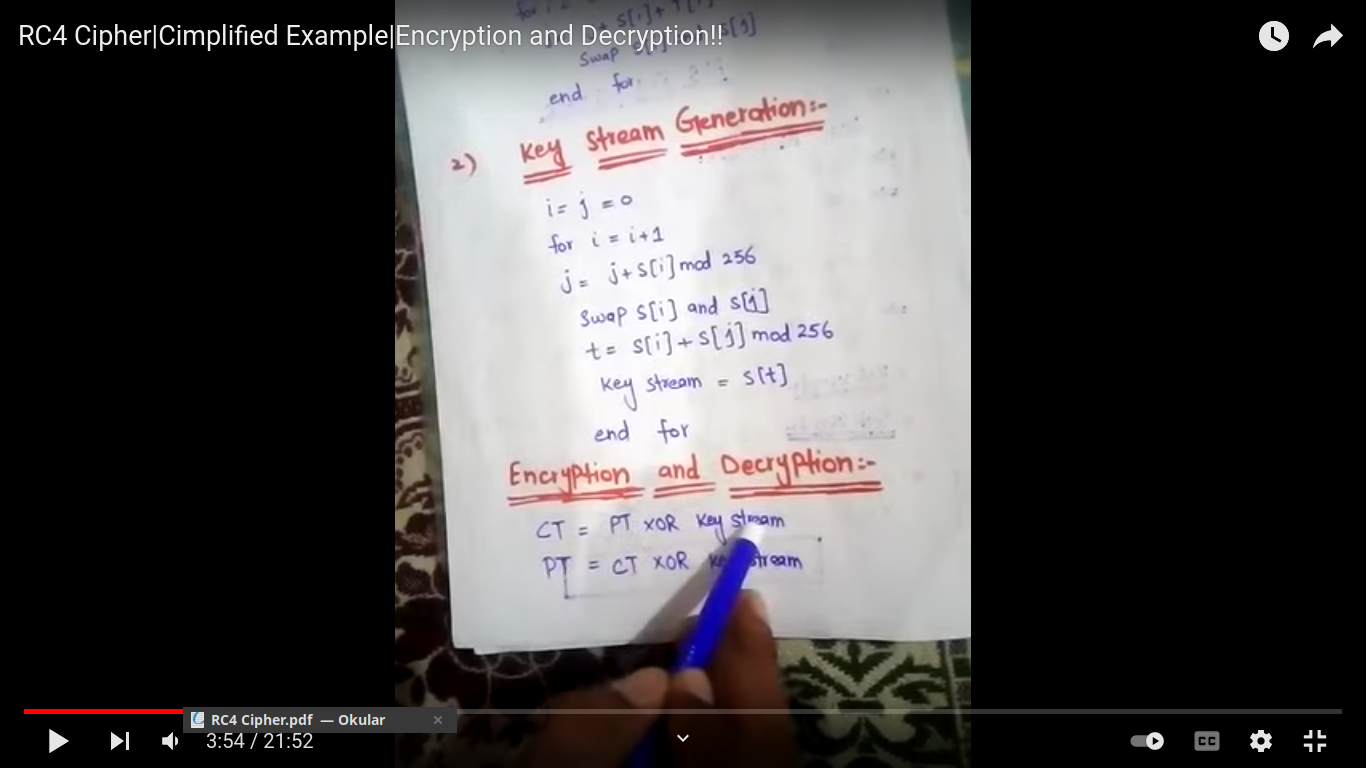 RC4 Cipher|Cimplified Example|Encryption and Decryption!!
for i
s[i]+
Swap s[j]
end for
2) Key Stream Generation:-
i= j = 0
for i = i+1
j= j+s[i] mod 256
Swap s[i] and s[j]
t= s[i]+s[j] mod 256
Key stream = s[t]
end for
Encryption and Decryption:-
CT = PT XOR Key stream
PT = CT XOR stream
RC4 Cipher.pdf — Okular
3:54 / 21:52
CC